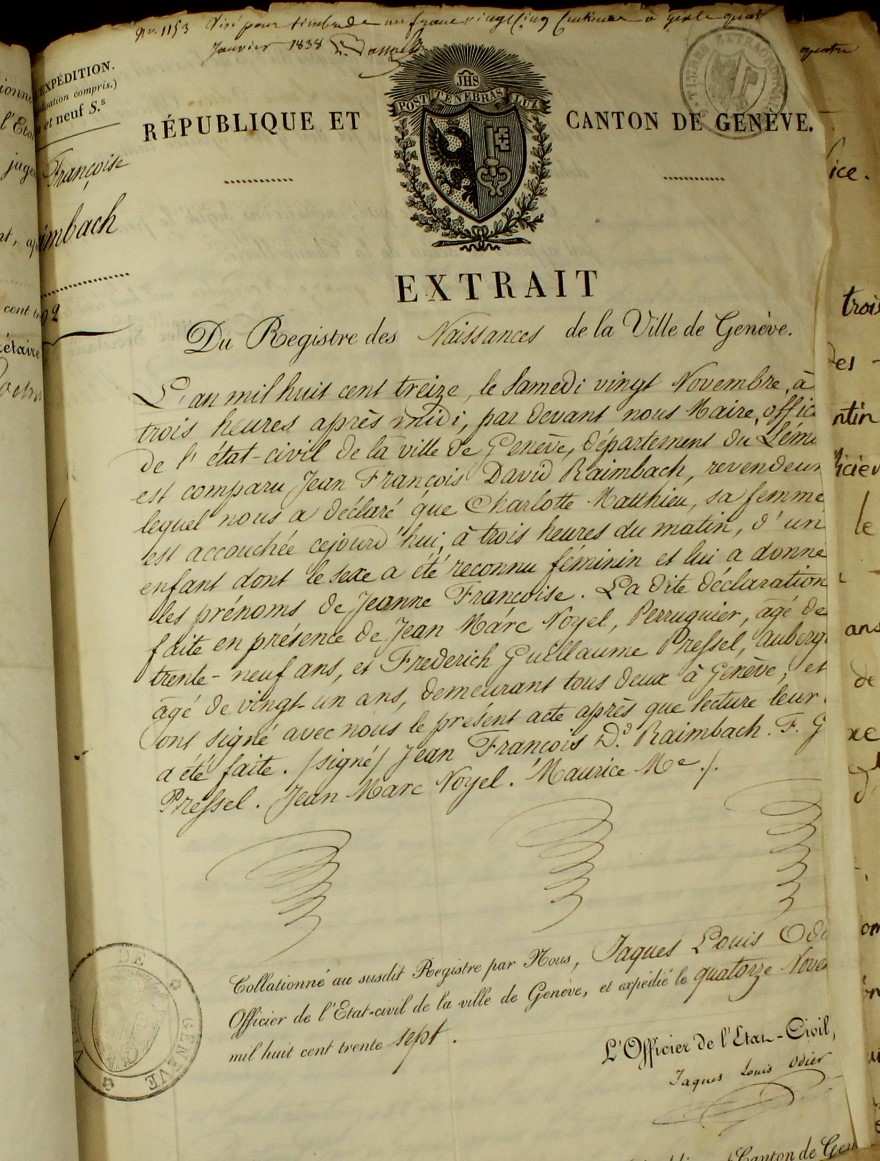 No. 1153 Visé pour timbre de un franc vingt cinq Centimes à Gex le quatre
Janvier 1838
EXPÉDITION.
compris.)
et neuf S.s
Françoise
imbach
JHS
POST TENEBRAS LUX
RÉPUBLIQUE ET CANTON DE GENÈVE.
EXTRAIT
Du Registre des Naissances de la Ville de Genève.
L'an mil huit cent treize, le Samedi vingt Novembre, à
trois heures après midi, par devant nous Maire, offic
de l'état-civil de la ville de Genève, département du Lém
est comparu Jean François David Raimbach, revendeur
lequel nous a déclaré que Charlotte Matthieu, sa femme
est accouchée cejourd'hui, à trois heures du matin, d'un
enfant dont le sexe a été reconnu féminin et lui a donné
les prénoms de Jeanne Françoise. La dite déclaration
faite en présence de Jean Marc Noyel, Perruquier, agé de
trente-neuf ans, et Frederich Guillaume Pressel, auberg
agé de vingt-un ans, demeurant tous deux à Genève, et
ont signé avec nous le présent acte après que lecture leur
a été faite. /signé/ Jean François D.d Raimbach. F. G
Pressel. Jean Marc Noyel. Maurice Me /.
Collationné au susdit Registre par Nous, Jaques Louis Odi
Officier de l'Etat-civil de la ville de Genève, et expédié le quatorze Novem
mil huit cent trente sept.
L'Officier de l'Etat-Civil,
Jaques Louis Odier
DE GENÈVE
Canton de Gen